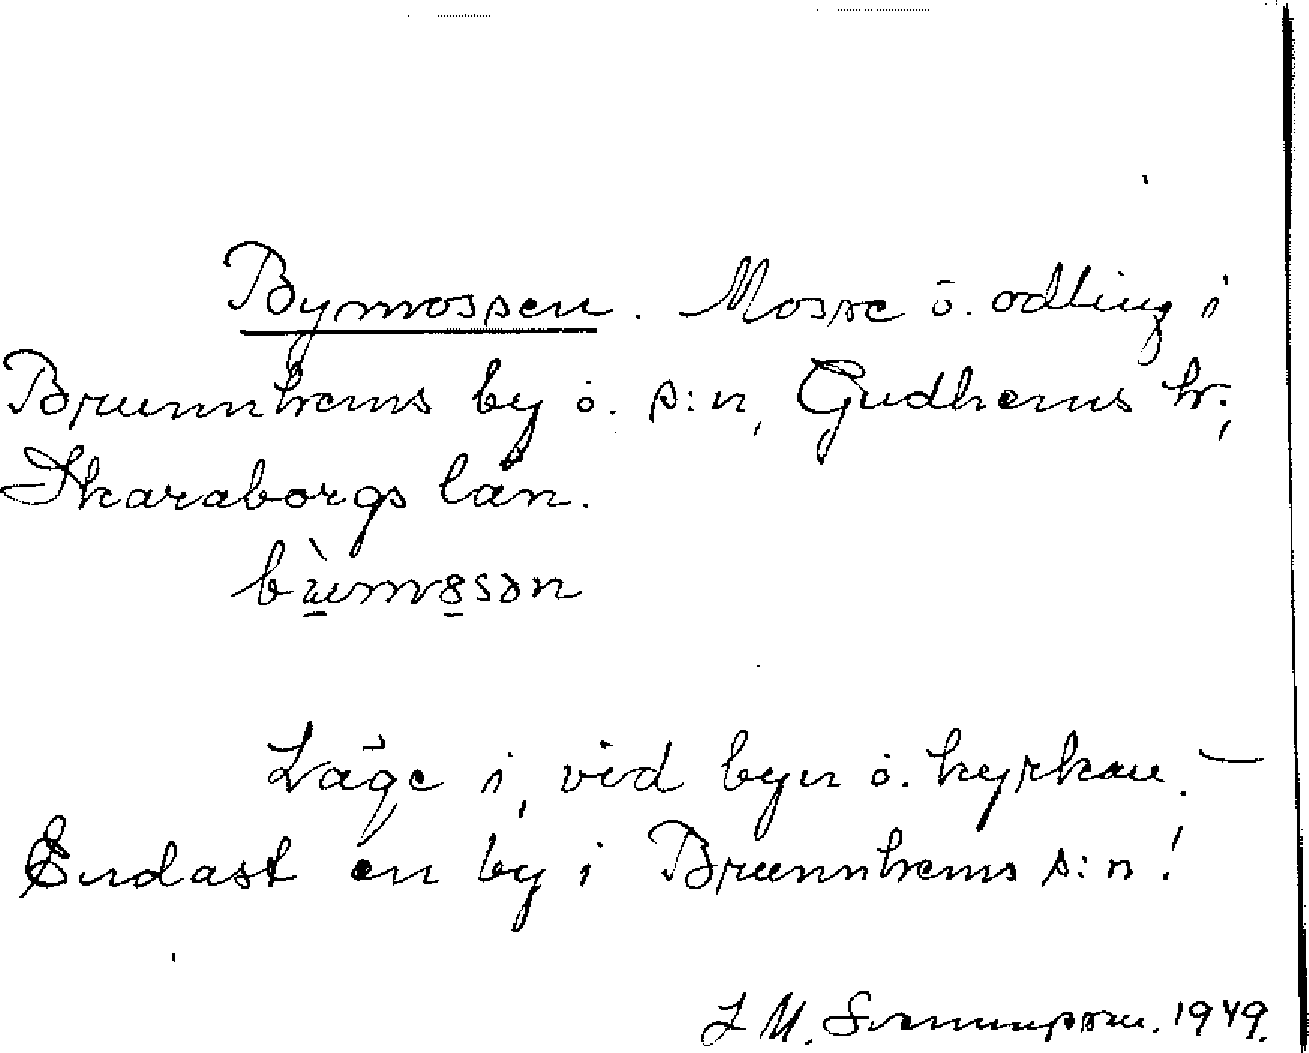 Bymossen. Mosse o. odling i
Brunnhems by o. s:n, Gudhems hr.,
Skaraborgs län.
Läge i, vid byn o. kyrkan. —
Endast en by i Brunnhems s:n!
1949.